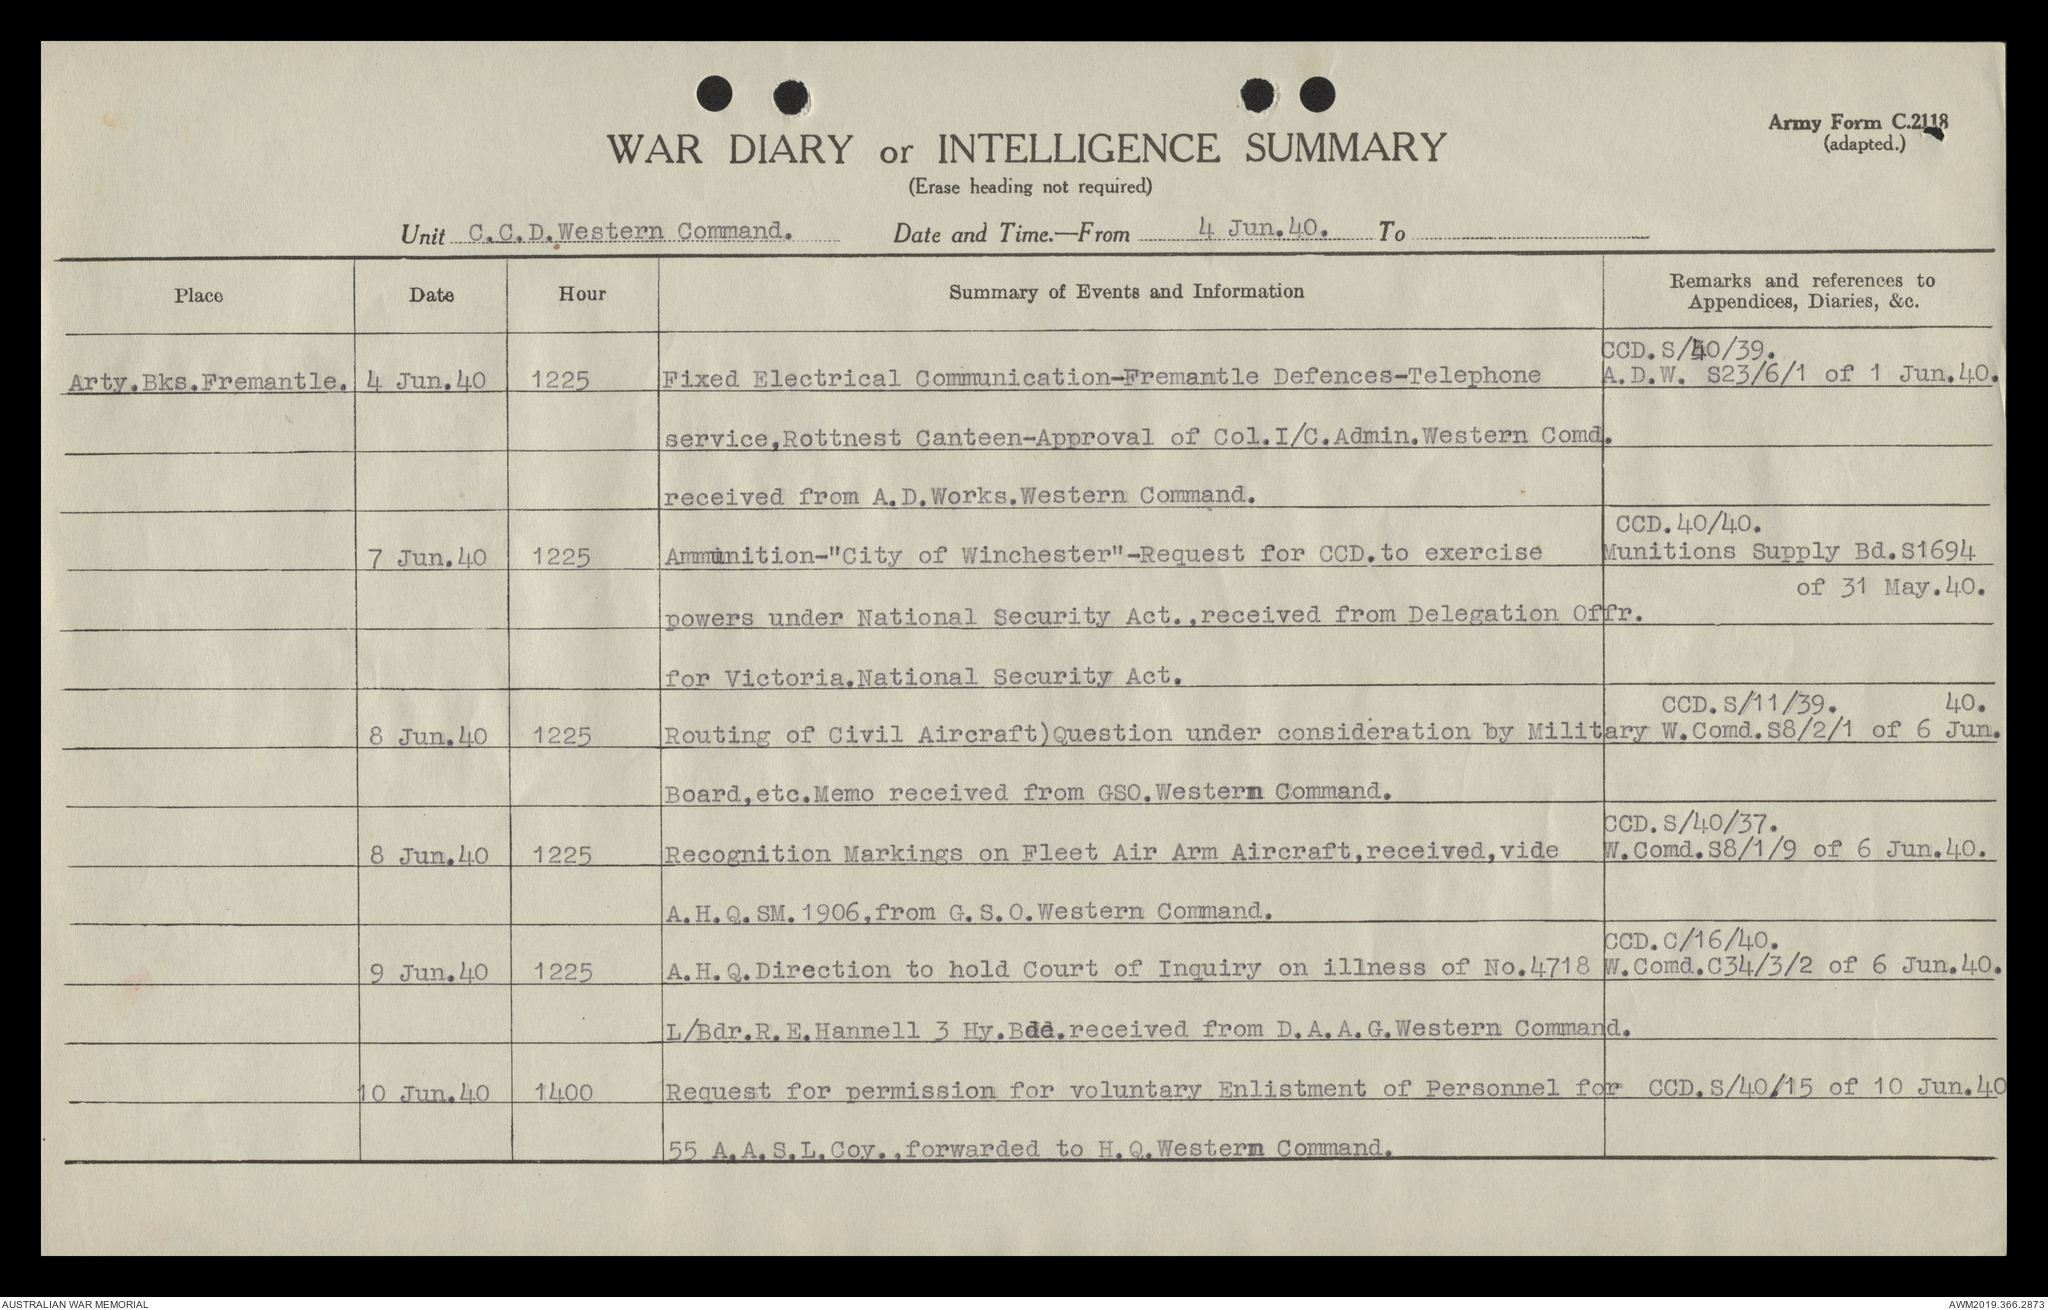 Army Form C.2118
(adapted.)
WAR DIARY or INTELLIGENCE SUMMARY
(Erase heading not required)
Unit C.C.D.Western Command. Date and Time.—From 4 Jun.40. To
Place Date Hour Summary of Events and Information Remarks and references to
Appendices, Diaries, &c.
CCD.S/40/39.
Arty.Bks.Fremantle. 4 Jun.40 1225 Fixed Electrical Communication-Fremantle Defences-Telephone A.D.W. S23/6/1 of 1 Jun.40.
service,Rottnest Canteen-Approval of Col.I/C.Admin.Western Comd.
received from A.D.Works.Western Command.
CCD.40/40.
7 Jun.40 1225 Ammunition-"City of Winchester"-Request for CCD.to exercise Munitions Supply Bd.S1694
of 31 May.40.
powers under National Security Act.,received from Delegation Offr.
for Victoria.National Security Act.
CCD.S/11/39. 40.
8 Jun.40 1225 Routing of Civil Aircraft)Question under consideration by Military W.Comd.S8/2/1 of 6 Jun.
Board,etc.Memo received from GSO.Western Command.
CCD.S/40/37.
8 Jun.40 1225 Recognition Markings on Fleet Air Arm Aircraft,received,vide W.Comd.S8/1/9 of 6 Jun.40.
A.H.Q.SM.1906,from G.S.O.Western Command.
CCD.C/16/40.
9 Jun.40 1225 A.H.Q.Direction to hold Court of Inquiry on illness of No.4718 W.Comd.C34/3/2 of 6 Jun.40.
L/Bdr.R.E.Hannell 3 Hy.Bde.received from D.A.A.G.Western Command.
10 Jun.40 1400 Request for permission for voluntary Enlistment of Personnel for CCD.S/40/15 of 10 Jun.40
55 A.A.S.L.Coy.,forwarded to H.Q.Western Command.
AUSTRALIAN WAR MEMORIAL AWM2019.366.2873